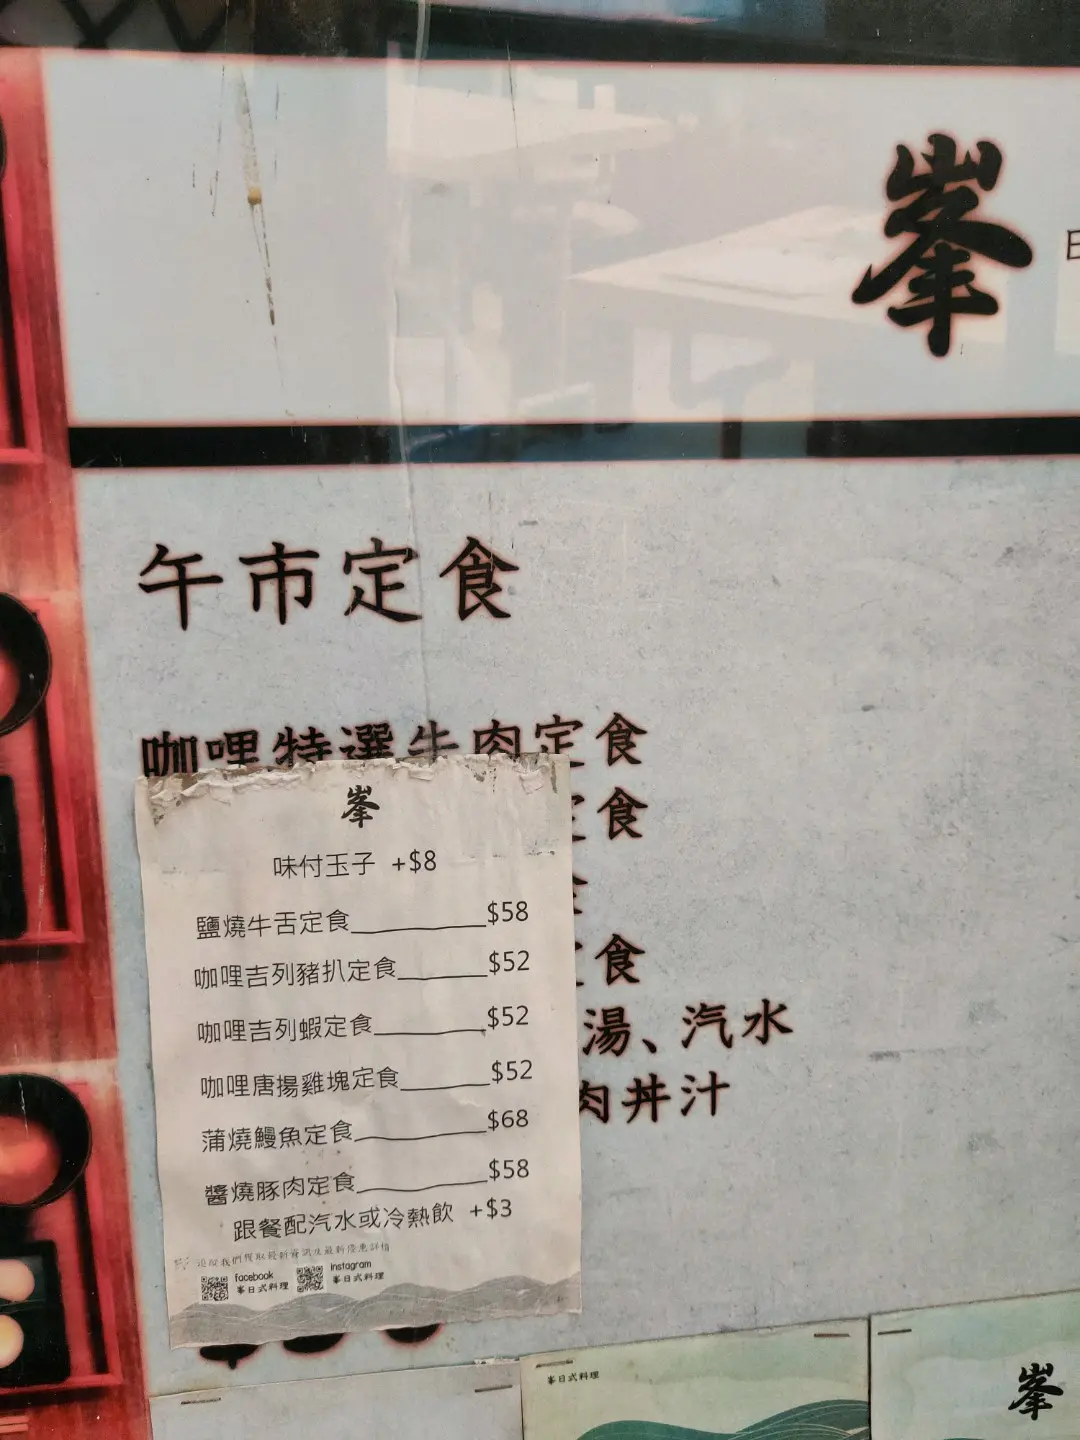 峯
午市定食
咖哩特選牛肉定食
定食
食
定食
湯、汽水
肉丼汁
峯
味付玉子 +$8
鹽燒牛舌定食__________$58
咖哩吉列豬扒定食_______$52
咖哩吉列蝦定食________$52
咖哩唐揚雞塊定食_______$52
蒲燒鰻魚定食__________$68
醬燒豚肉定食__________$58
跟餐配汽水或冷熱飲 +$3
追蹤我們獲取最新資訊
facebook
峯日式料理
instagram
峯日式料理
峯日式料理
峯